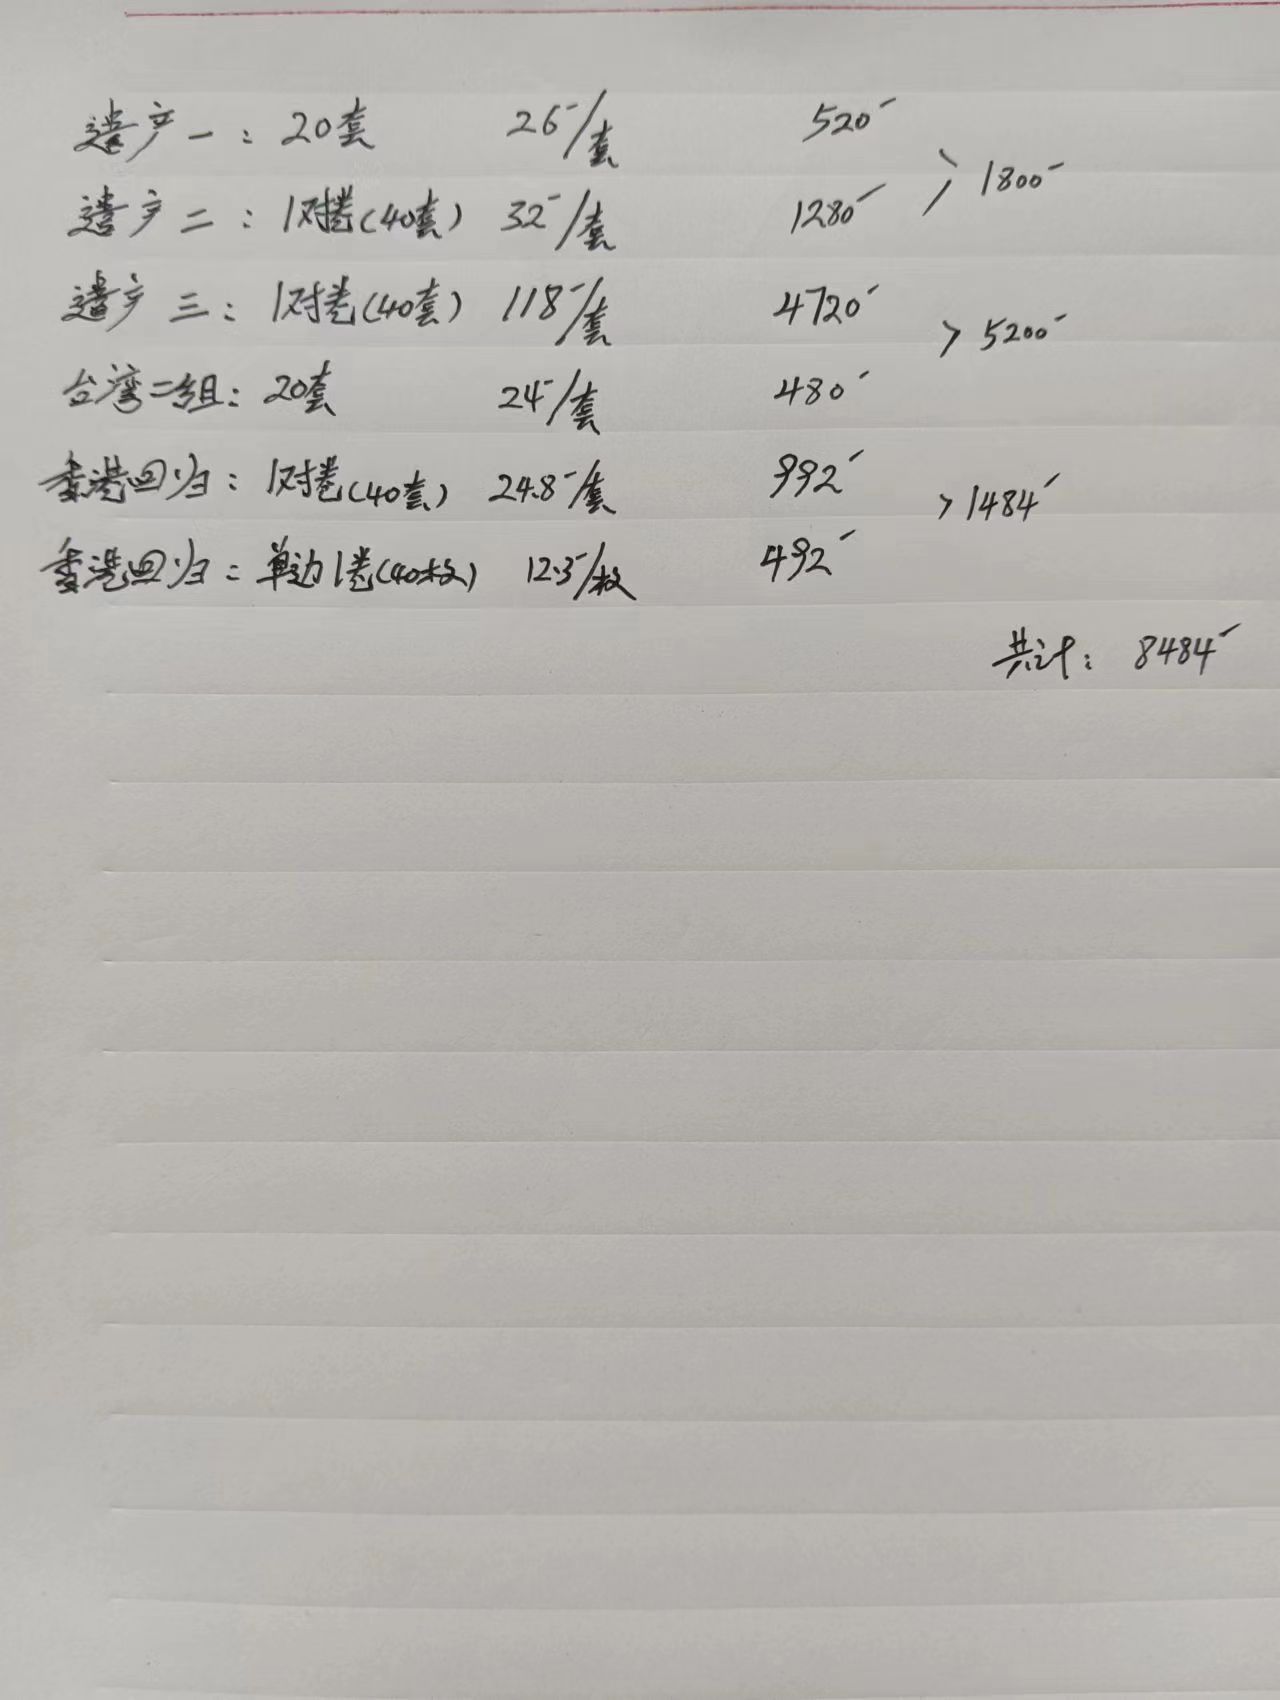 遗产一：20套 26-/套 520-
遗产二：1对卷(40套) 32-/套 1280- > 1800-
遗产三：1对卷(40套) 118-/套 4720-
台湾二组：20套 24-/套 480- > 5200-
香港回归：1对卷(40套) 24.8-/套 992-
香港回归：单边1卷(40枚) 12.3-/枚 492- > 1484-
共计：8484-